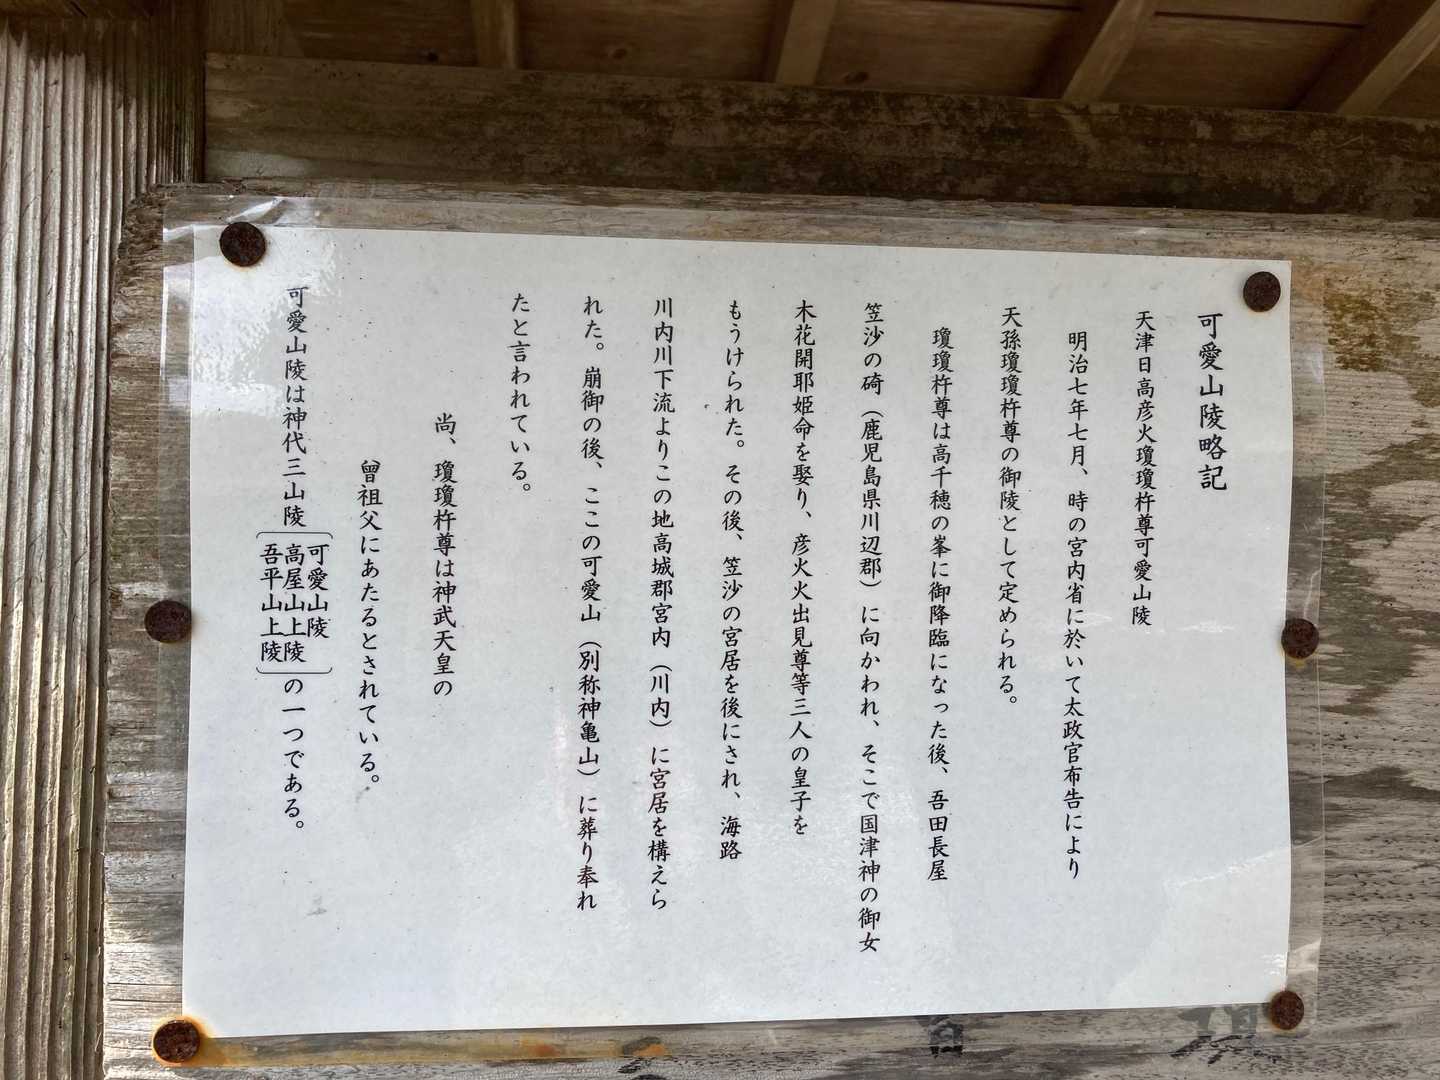 可愛山陵略記
天津日高彦火瓊瓊杵尊可愛山陵
明治七年七月、時の宮内省に於いて太政官布告により
天孫瓊瓊杵尊の御陵として定められる。
瓊瓊杵尊は高千穂の峯に御降臨になった後、吾田長屋
笠沙の碕（鹿児島県川辺郡）に向かわれ、そこで国津神の御女
木花開耶姫命を娶り、彦火火出見尊等三人の皇子を
もうけられた。その後、笠沙の宮居を後にされ、海路
川内川下流よりこの地高城郡宮内（川内）に宮居を構えら
れた。崩御の後、ここの可愛山（別称神亀山）に葬り奉れ
たと言われている。
尚、瓊瓊杵尊は神武天皇の
曾祖父にあたるとされている。
可愛山陵は神代三山陵
可愛山陵
高屋山上陵
吾平山上陵
の一つである。